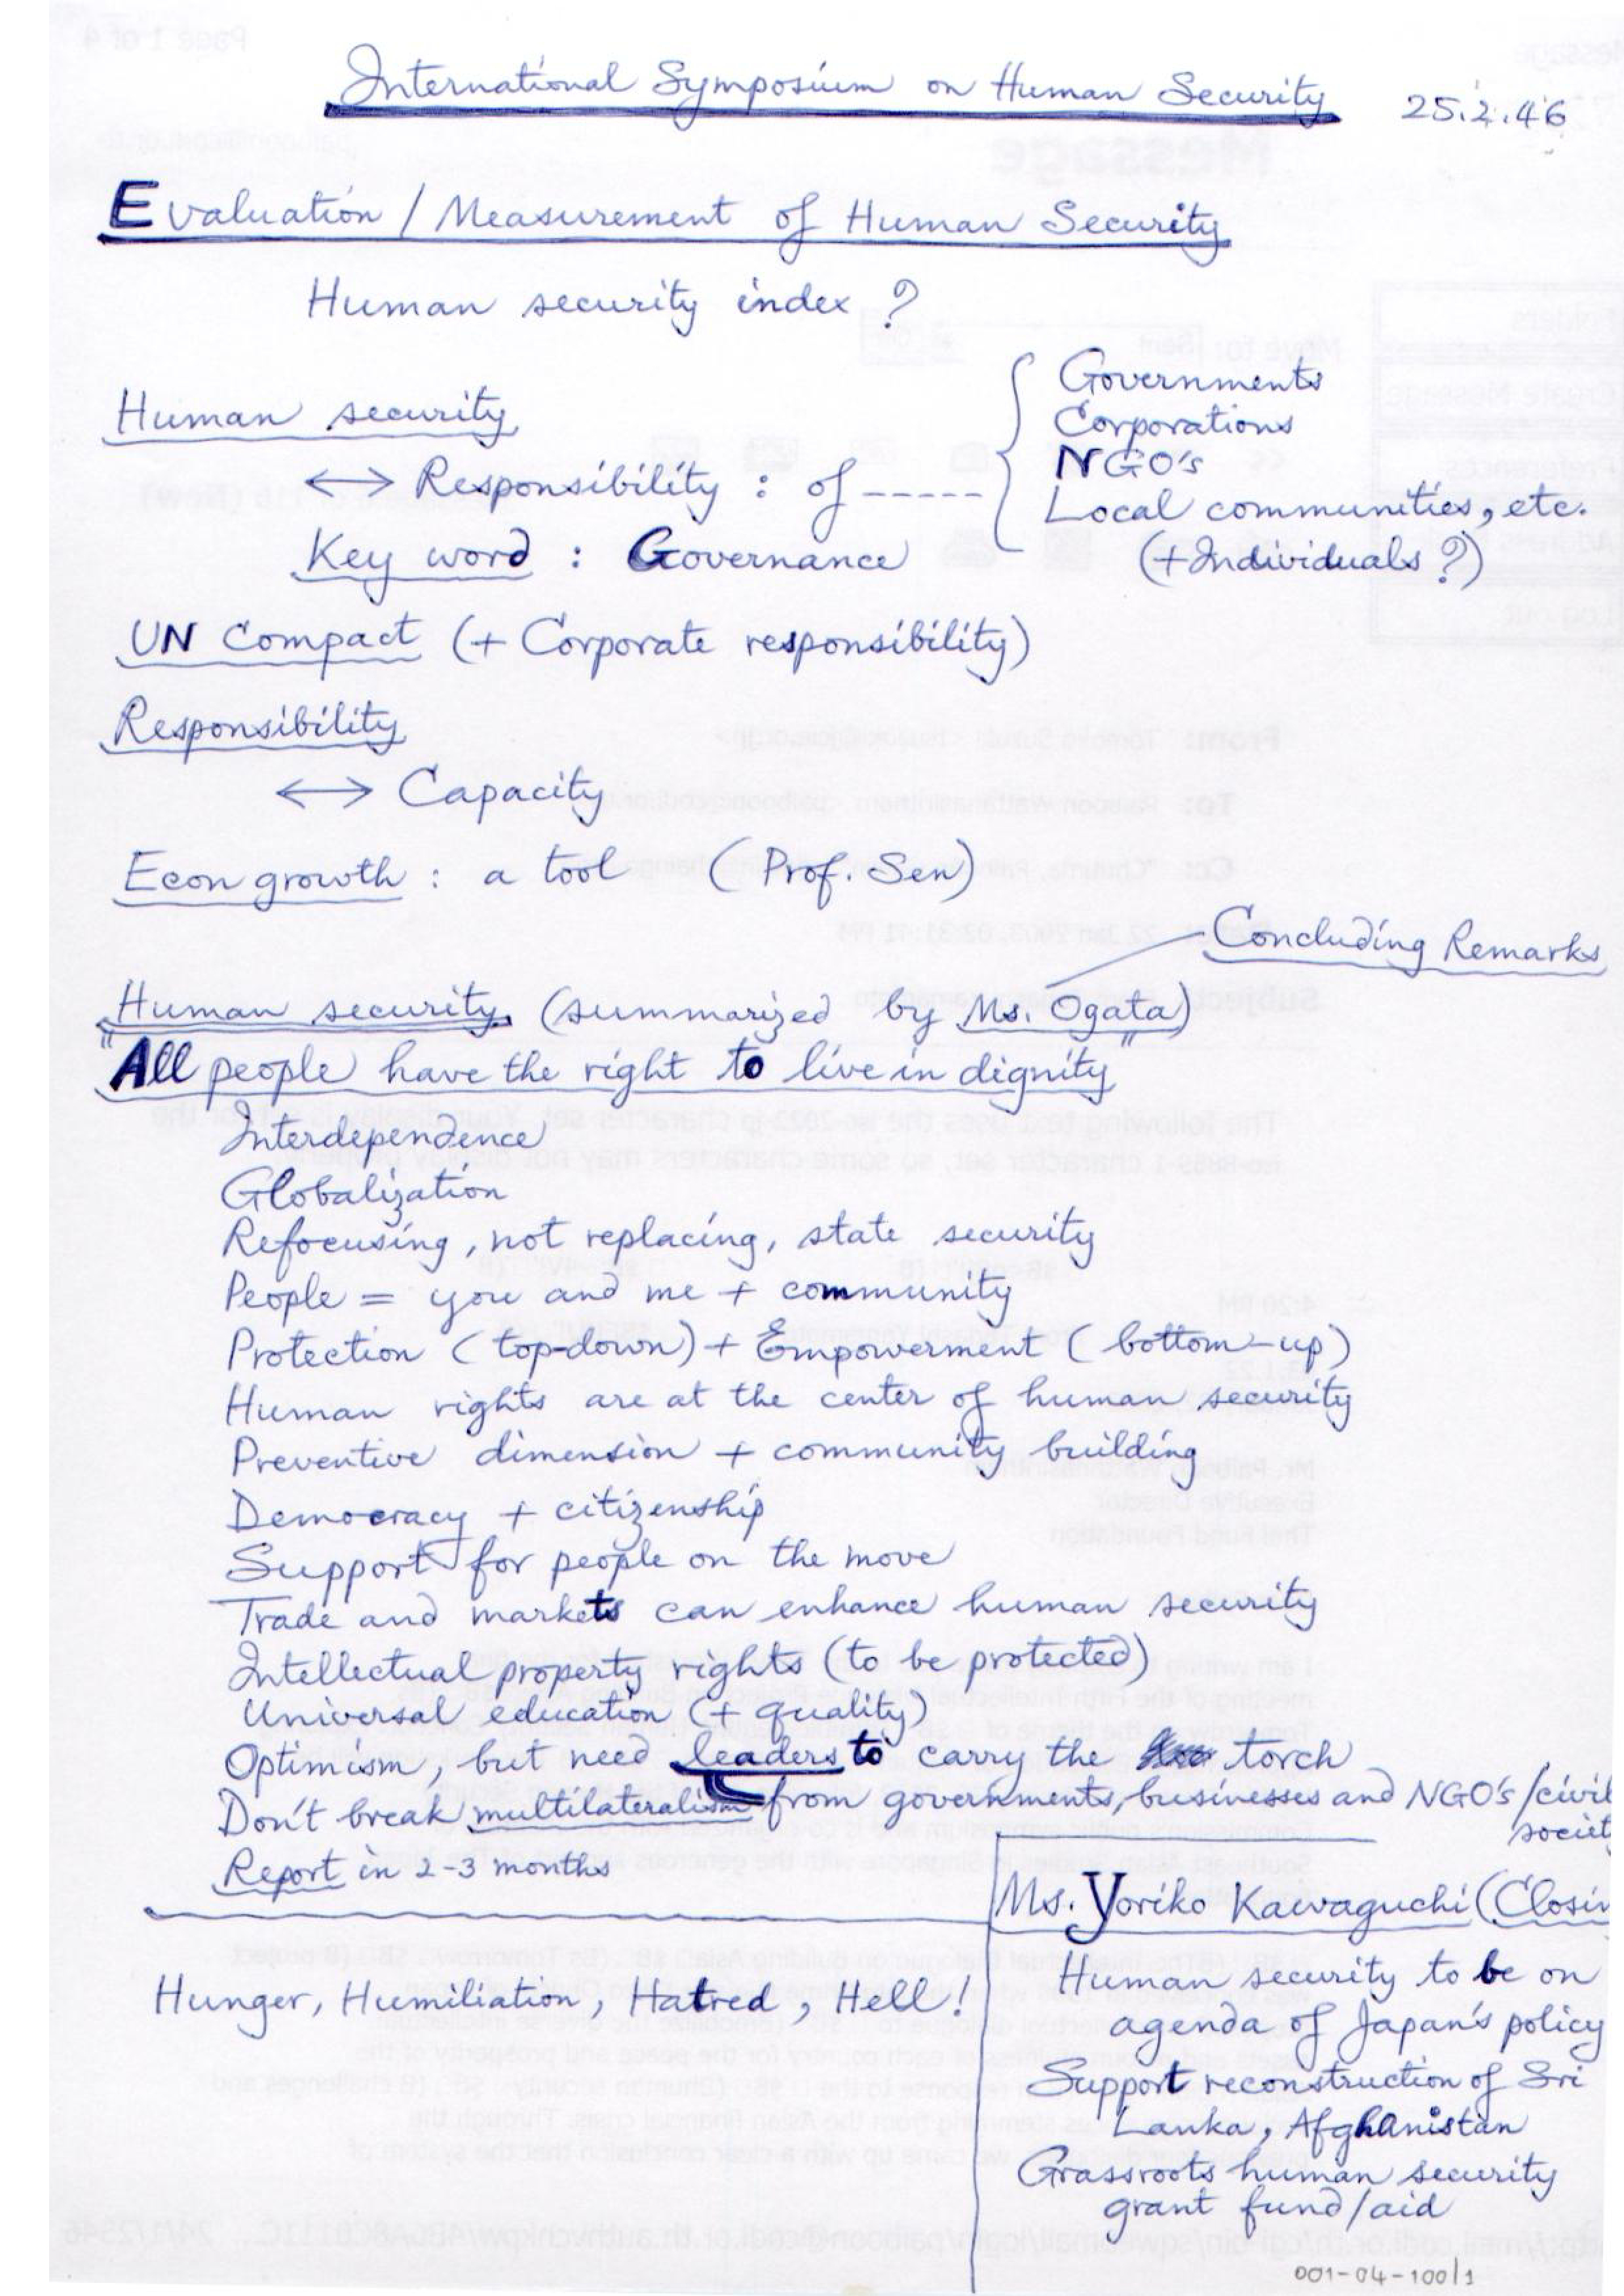 International Symposium on Human Security 25.2.46
Evaluation / Measurement of Human Security
Human security index ?
Human security
↔ Responsibility : of -----
Governments
Corporations
NGO's
Local communities, etc.
(+Individuals ?)
Key word : Governance
UN Compact (+ Corporate responsibility)
Responsibility
↔ Capacity
Econ growth : a tool (Prof. Sen)
Concluding Remarks
Human security (summarized by Ms. Ogata)
"All people have the right to live in dignity"
Interdependence
Globalization
Refocusing, not replacing, state security
People = you and me + community
Protection (top-down) + Empowerment (bottom-up)
Human rights are at the center of human security
Preventive dimension + community building
Democracy + citizenship
Support for people on the move
Trade and markets can enhance human security
Intellectual property rights (to be protected)
Universal education (+ quality)
Optimism, but need leaders to carry the torch
Don't break multilateralism from governments, businesses and NGO's/civil
societ
Report in 2-3 months
Hunger, Humiliation, Hatred, Hell!
Ms. Yoriko Kawaguchi (Closin
Human security to be on
agenda of Japan's policy
Support reconstruction of Sri
Lanka, Afghanistan
Grassroots human security
grant fund/aid
001-04-100/1